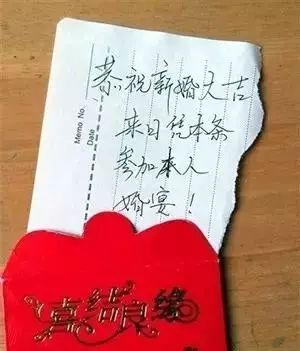 Memo No.
Date
恭祝新婚大吉
来日凭本条
参加本人
婚宴！
喜结良缘